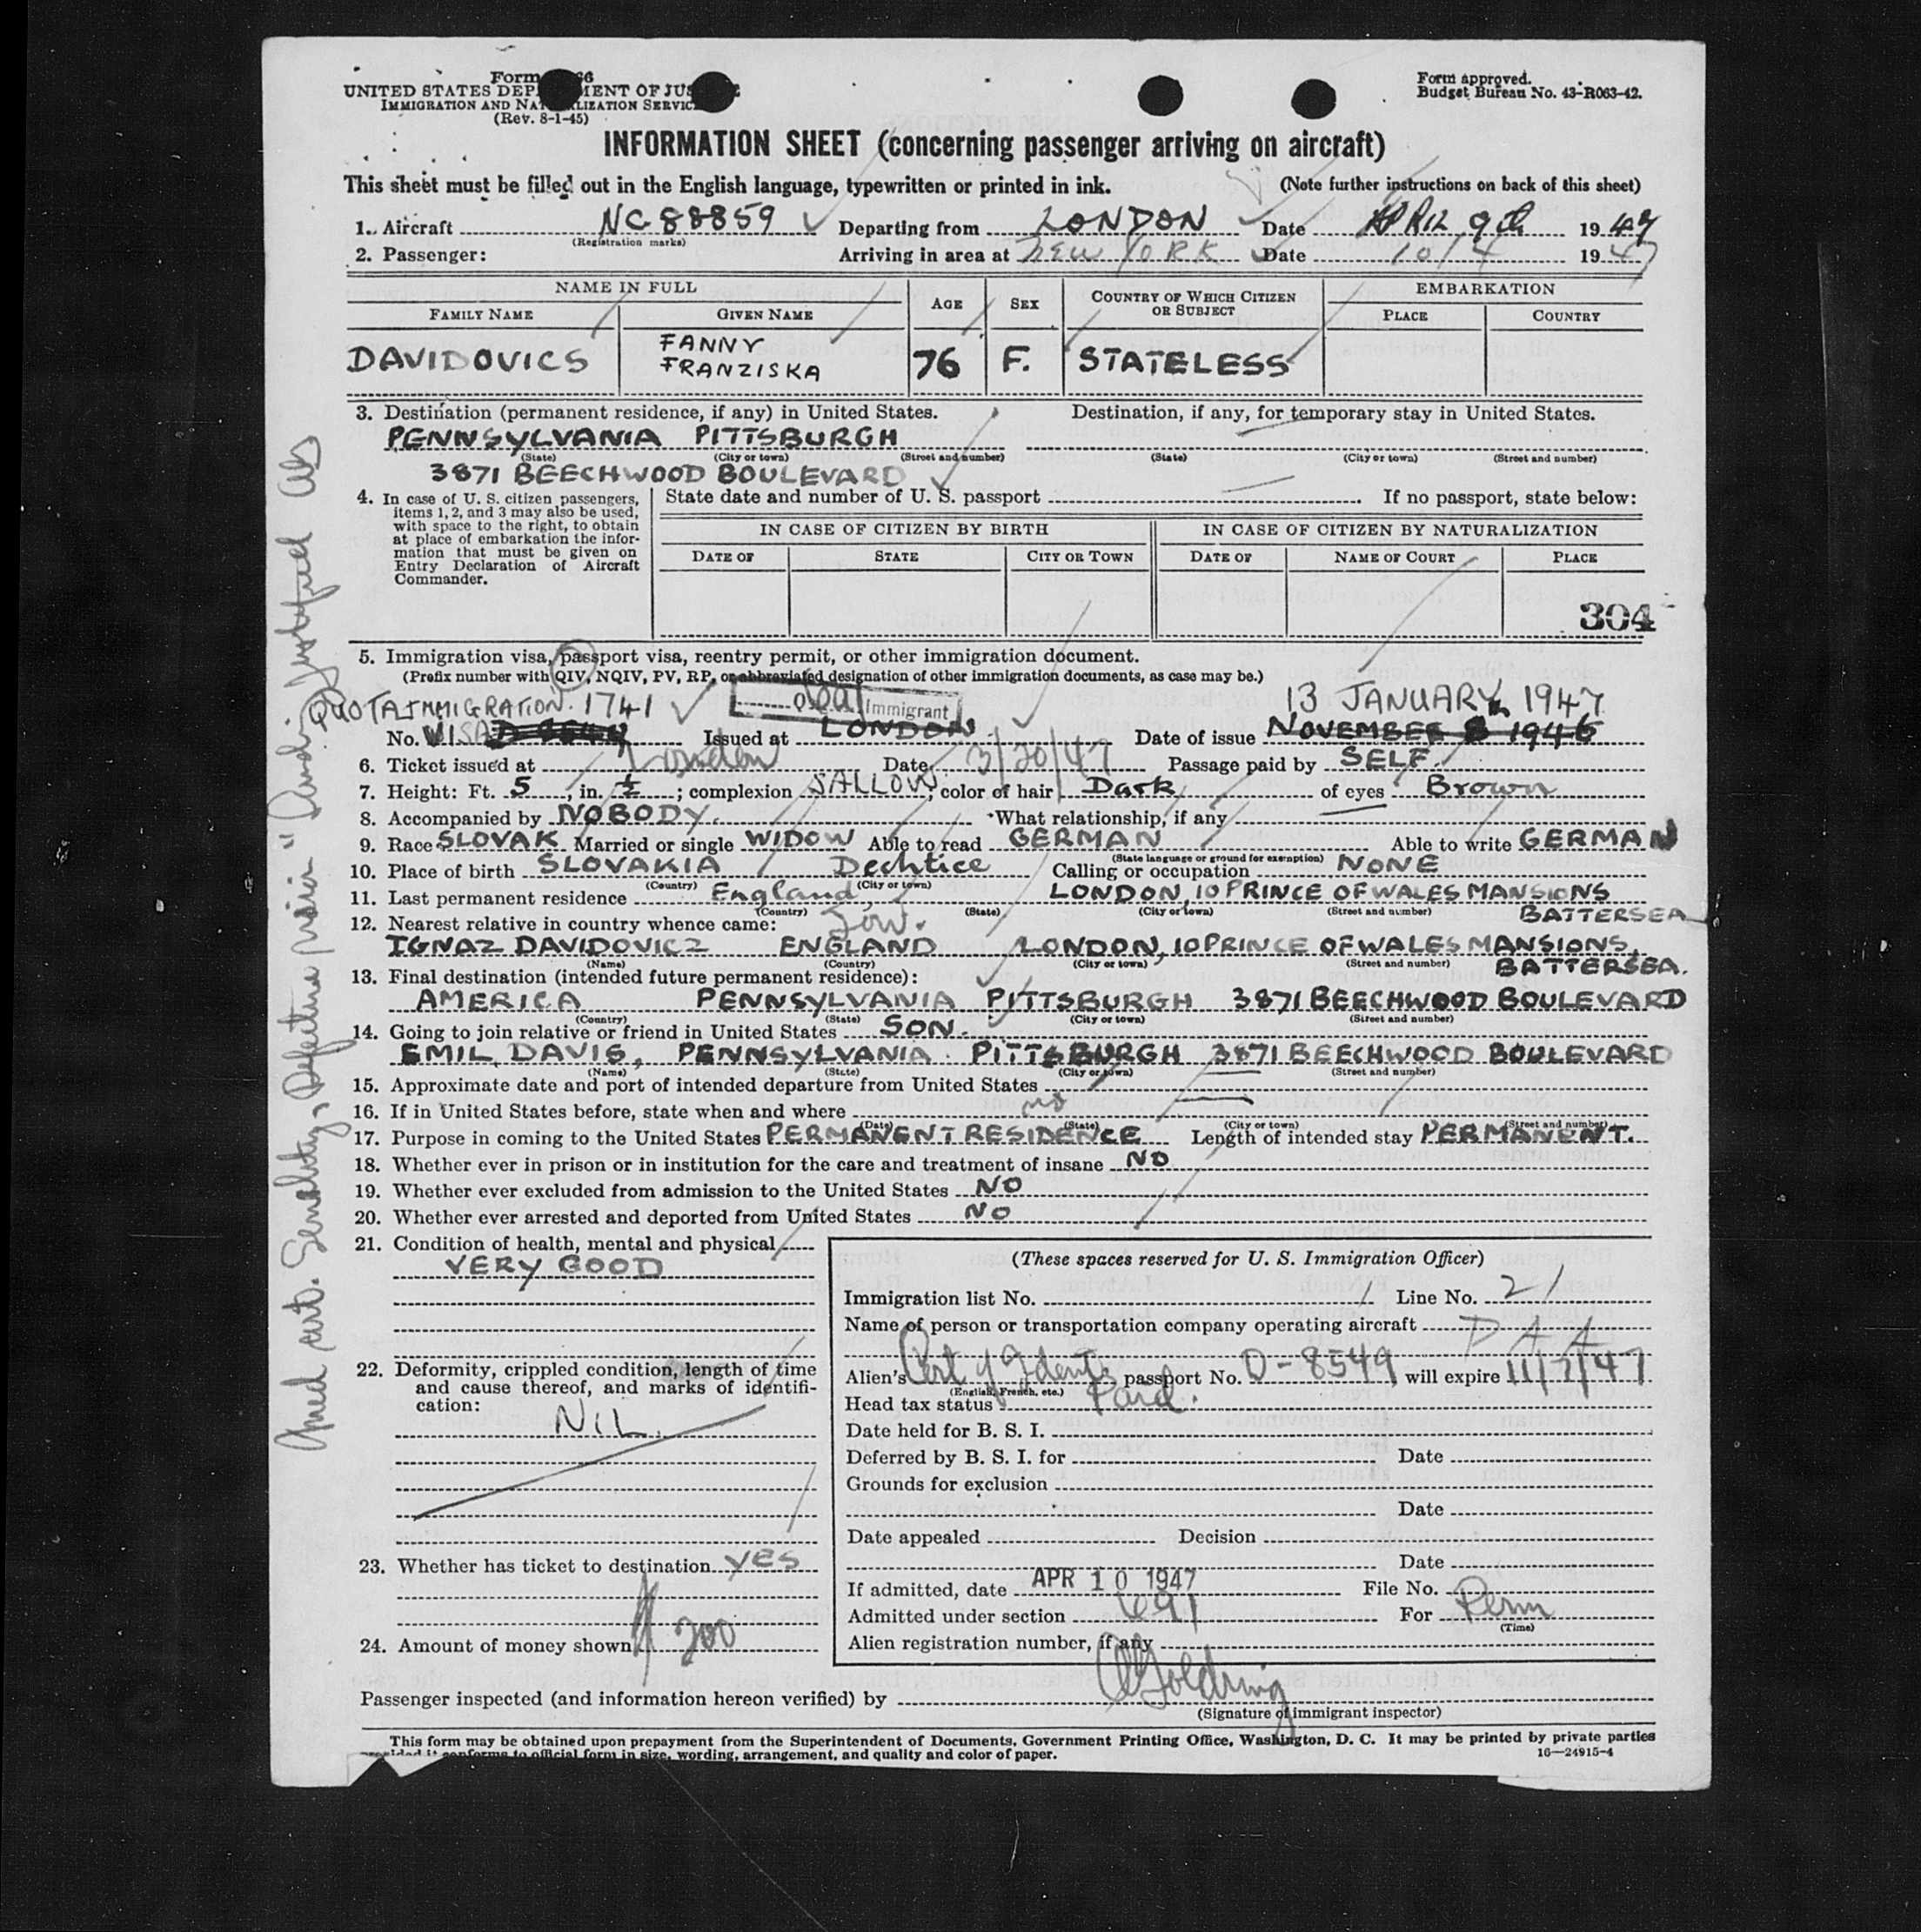 Form 66
UNITED STATES DEP MENT OF JUS
IMMIGRATION AND NAT LIZATION SERVIC
(Rev. 8-1-45)
Form approved.
Budget Bureau No. 43-R063-42.
INFORMATION SHEET (concerning passenger arriving on aircraft)
This sheet must be filled out in the English language, typewritten or printed in ink. (Note further instructions on back of this sheet)
1. Aircraft NC 88859 Departing from LONDON Date APRIL 9th 1947
(Registration marks)
2. Passenger: Arriving in area at NEW YORK Date 10/4 1947
NAME IN FULL AGE SEX COUNTRY OF WHICH CITIZEN OR SUBJECT EMBARKATION
FAMILY NAME GIVEN NAME PLACE COUNTRY
DAVIDOVICS FANNY FRANZISKA 76 F. STATELESS
3. Destination (permanent residence, if any) in United States. Destination, if any, for temporary stay in United States.
PENNSYLVANIA PITTSBURGH
(State) (City or town) (Street and number) (State) (City or town) (Street and number)
3871 BEECHWOOD BOULEVARD
4. In case of U. S. citizen passengers, items 1, 2, and 3 may also be used, with space to the right, to obtain at place of embarkation the information that must be given on Entry Declaration of Aircraft Commander.
State date and number of U. S. passport If no passport, state below:
IN CASE OF CITIZEN BY BIRTH IN CASE OF CITIZEN BY NATURALIZATION
DATE OF STATE CITY OR TOWN DATE OF NAME OF COURT PLACE
304
5. Immigration visa, passport visa, reentry permit, or other immigration document.
(Prefix number with QIV, NQIV, PV, RP, or abbreviated designation of other immigration documents, as case may be.)
QUOTA IMMIGRATION. 1741 Immigrant 13 JANUARY 1947
No. VISA Issued at LONDON Date of issue NOVEMBER 8 1946
6. Ticket issued at London Date 3/20/47 Passage paid by SELF.
7. Height: Ft. 5, in. ½; complexion SALLOW, color of hair Dark of eyes Brown
8. Accompanied by NOBODY. What relationship, if any
9. Race SLOVAK Married or single WIDOW Able to read GERMAN Able to write GERMAN
(State language or ground for exemption)
10. Place of birth SLOVAKIA Dechtice Calling or occupation NONE
(Country) (City or town)
11. Last permanent residence England, LONDON, 10 PRINCE OF WALES MANSIONS
(Country) (State) (City or town) (Street and number) BATTERSEA
12. Nearest relative in country whence came: Son.
IGNAZ DAVIDOVICZ ENGLAND LONDON, 10 PRINCE OF WALES MANSIONS,
(Name) (Country) (City or town) (Street and number) BATTERSEA.
13. Final destination (intended future permanent residence):
AMERICA PENNSYLVANIA PITTSBURGH 3871 BEECHWOOD BOULEVARD
(Country) (State) (City or town) (Street and number)
14. Going to join relative or friend in United States SON.
EMIL DAVIS, PENNSYLVANIA PITTSBURGH 3871 BEECHWOOD BOULEVARD
(Name) (State) (City or town) (Street and number)
15. Approximate date and port of intended departure from United States
16. If in United States before, state when and where no
(Date) (State) (City or town) (Street and number)
17. Purpose in coming to the United States PERMANENT RESIDENCE Length of intended stay PERMANENT.
18. Whether ever in prison or in institution for the care and treatment of insane NO
19. Whether ever excluded from admission to the United States NO
20. Whether ever arrested and deported from United States NO
21. Condition of health, mental and physical
VERY GOOD
22. Deformity, crippled condition, length of time and cause thereof, and marks of identification:
NIL.
23. Whether has ticket to destination YES
24. Amount of money shown $ 200
(These spaces reserved for U. S. Immigration Officer)
Immigration list No. 1 Line No. 21
Name of person or transportation company operating aircraft P A A
Alien's Cert of Ident. passport No. D-8549 will expire 11/7/47
(English, French, etc.)
Head tax status Paid.
Date held for B. S. I.
Deferred by B. S. I. for Date
Grounds for exclusion
Date
Date appealed Decision
Date
If admitted, date APR 10 1947 File No.
Admitted under section 691 For Perm
(Time)
Alien registration number, if any
Passenger inspected (and information hereon verified) by Goldring
(Signature of immigrant inspector)
This form may be obtained upon prepayment from the Superintendent of Documents, Government Printing Office, Washington, D. C. It may be printed by private parties
provided it conforms to official form in size, wording, arrangement, and quality and color of paper. 16—24915-4
Med cert. Senility, Defective vision